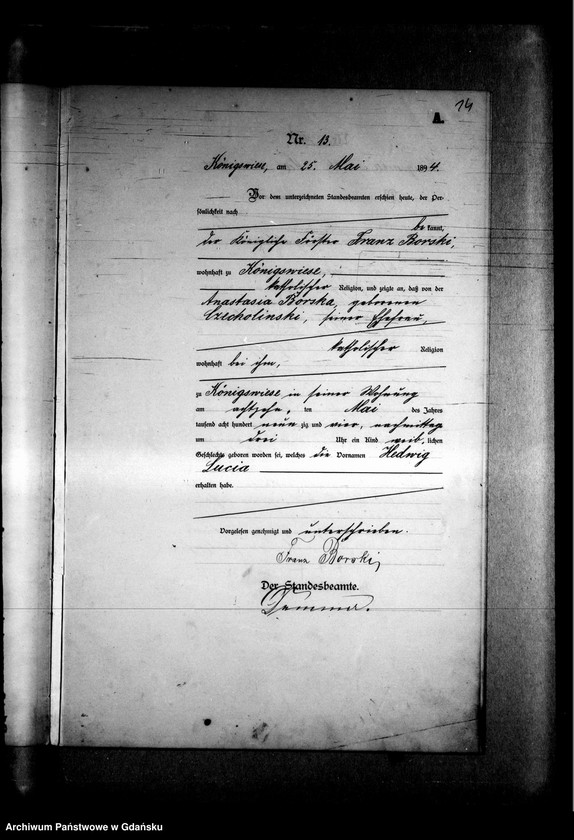 14
A.
Nr. 13.
Königswiese, am 25. Mai 1894.
Vor dem unterzeichneten Standesbeamten erschien heute, der Per-
sönlichkeit nach
bekannt,
der Königliche Förster Franz Borski,
wohnhaft zu Königswiese,
katholischer Religion, und zeigte an, daß von der
Anastasia Borska, geborenen
Czecholinski, seiner Ehefrau,
katholischer Religion
wohnhaft bei ihm,
zu Königswiese in seiner Wohnung
am achtzehn, ten Mai des Jahres
tausend acht hundert neunzig und vier, nachmittag
um drei Uhr ein Kind weiblichen
Geschlechts geboren worden sei, welches die Vornamen Hedwig
Lucia
erhalten habe.
Vorgelesen genehmigt und unterschrieben.
Franz Borski,
Der Standesbeamte.
Archiwum Państwowe w Gdańsku